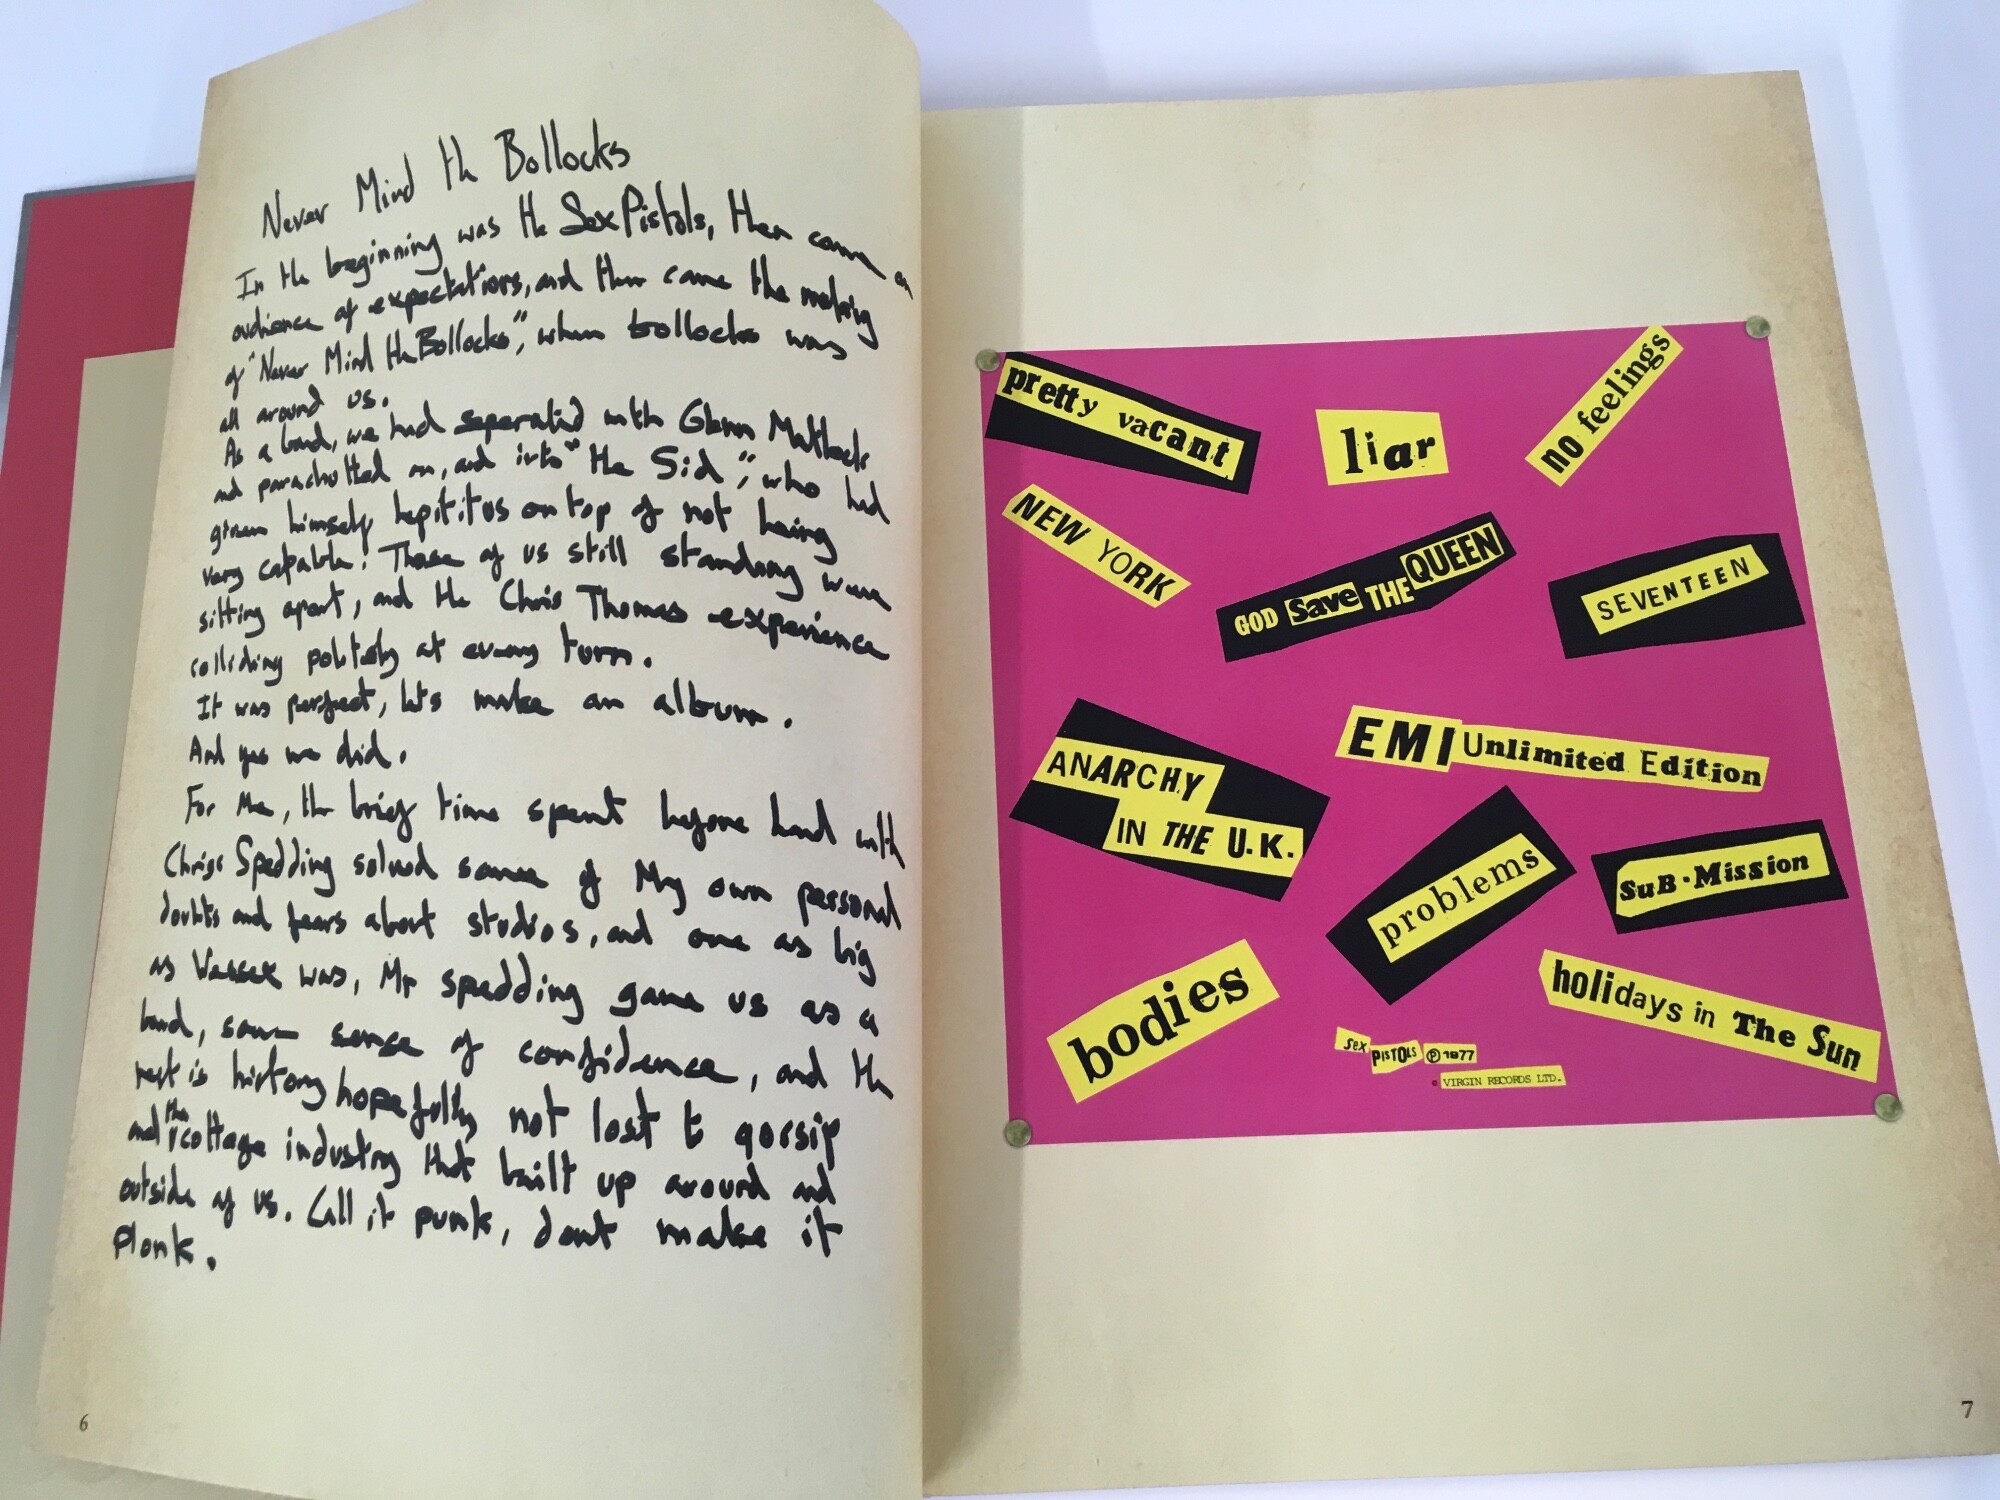 Never Mind the Bollocks
In the beginning was the Sex Pistols, then came an
audience of expectations, and then came the making
of "Never Mind the Bollocks", when bollocks was
all around us.
As a band, we had seperatid with Glenn Matlock
and parachutted on, and into "the Sid", who had
given himself hepititus on top of not being
very capable! Those of us still standing were
sitting apart, and the Chris Thomas experience
colliding politely at every turn.
It was perfect, lets make an album.
And yes we did.
For me, the brief time spent before hand with
Chris Spedding solved some of My own personal
doubts and fears about studios, and one as big
as Wessex was, Mr spedding gave us as a
band, some sense of confidence, and the
rest is history hopefully not lost to gossip
and the cottage industry that built up around and
outside of us. Call it punk, dont make it
Plonk.
6
pretty vacant
liar
no feelings
NEW YORK
GOD Save THE QUEEN
SEVENTEEN
ANARCHY
IN THE U.K.
EMI Unlimited Edition
problems
SuB·Mission
bodies
holidays in The Sun
sex PISTOLS ℗ 1977
© VIRGIN RECORDS LTD.
7